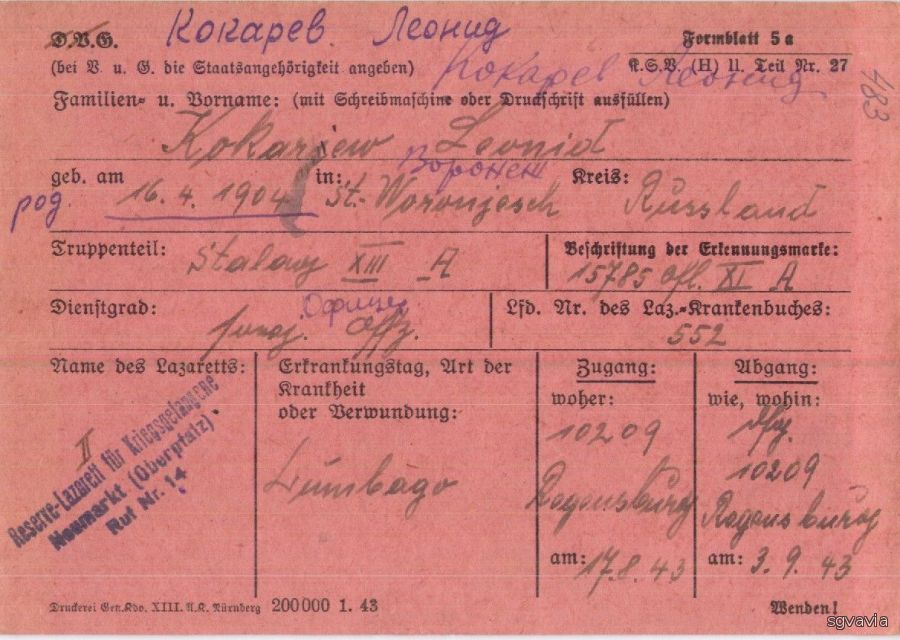 D.V.G. Кокарев Леонид Formblatt 5a
(bei V. u. G. die Staatsangehörigkeit angeben) K.S.V. (H) II. Teil Nr. 27
Кокарев Леонид
483
Familien- u. Vorname: (mit Schreibmaschine oder Druckschrift ausfüllen)
Kokarjew Leonid
Воронеж
geb. am 16.4.1904 in: St. Woronjesch Kreis: Russland
род.
Truppenteil: Stalag XIII A Beschriftung der Erkennungsmarke:
15785 Ofl. XI A
Офицер
Dienstgrad: Offz. Lfd. Nr. des Laz.-Krankenbuches:
552
Name des Lazaretts:
II
Reserve-Lazarett für Kriegsgefangene
Neumarkt (Oberpfalz)
Ruf Nr. 14
Erkrankungstag, Art der
Krankheit
oder Verwundung:
Lumbago
Zugang:
woher:
10209
Regensburg
am: 17.8.43
Abgang:
wie, wohin:
10209
Regensburg
am: 3.9.43
Druckerei Gen.Kdo. XIII. A.K. Nürnberg 200000 1. 43 Wenden!
sgvavia